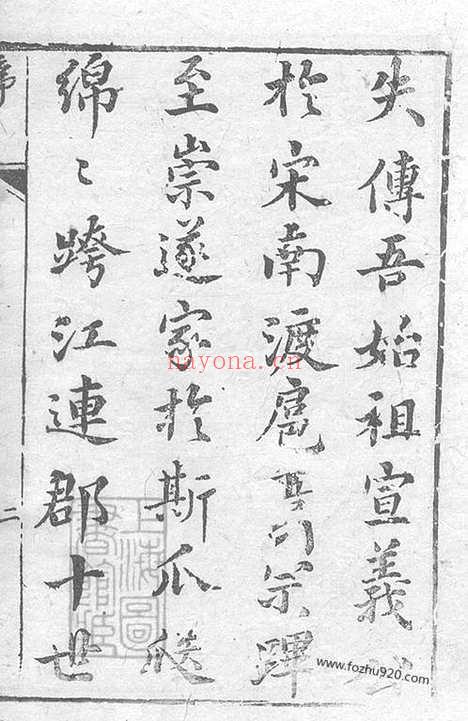 失傳吾始祖宣義公
於宋南渡扈高宗蹕
至崇遂家於斯瓜瓞
綿〻跨江連郡十世
序
二
nayona.cn
www.fozhu920.com